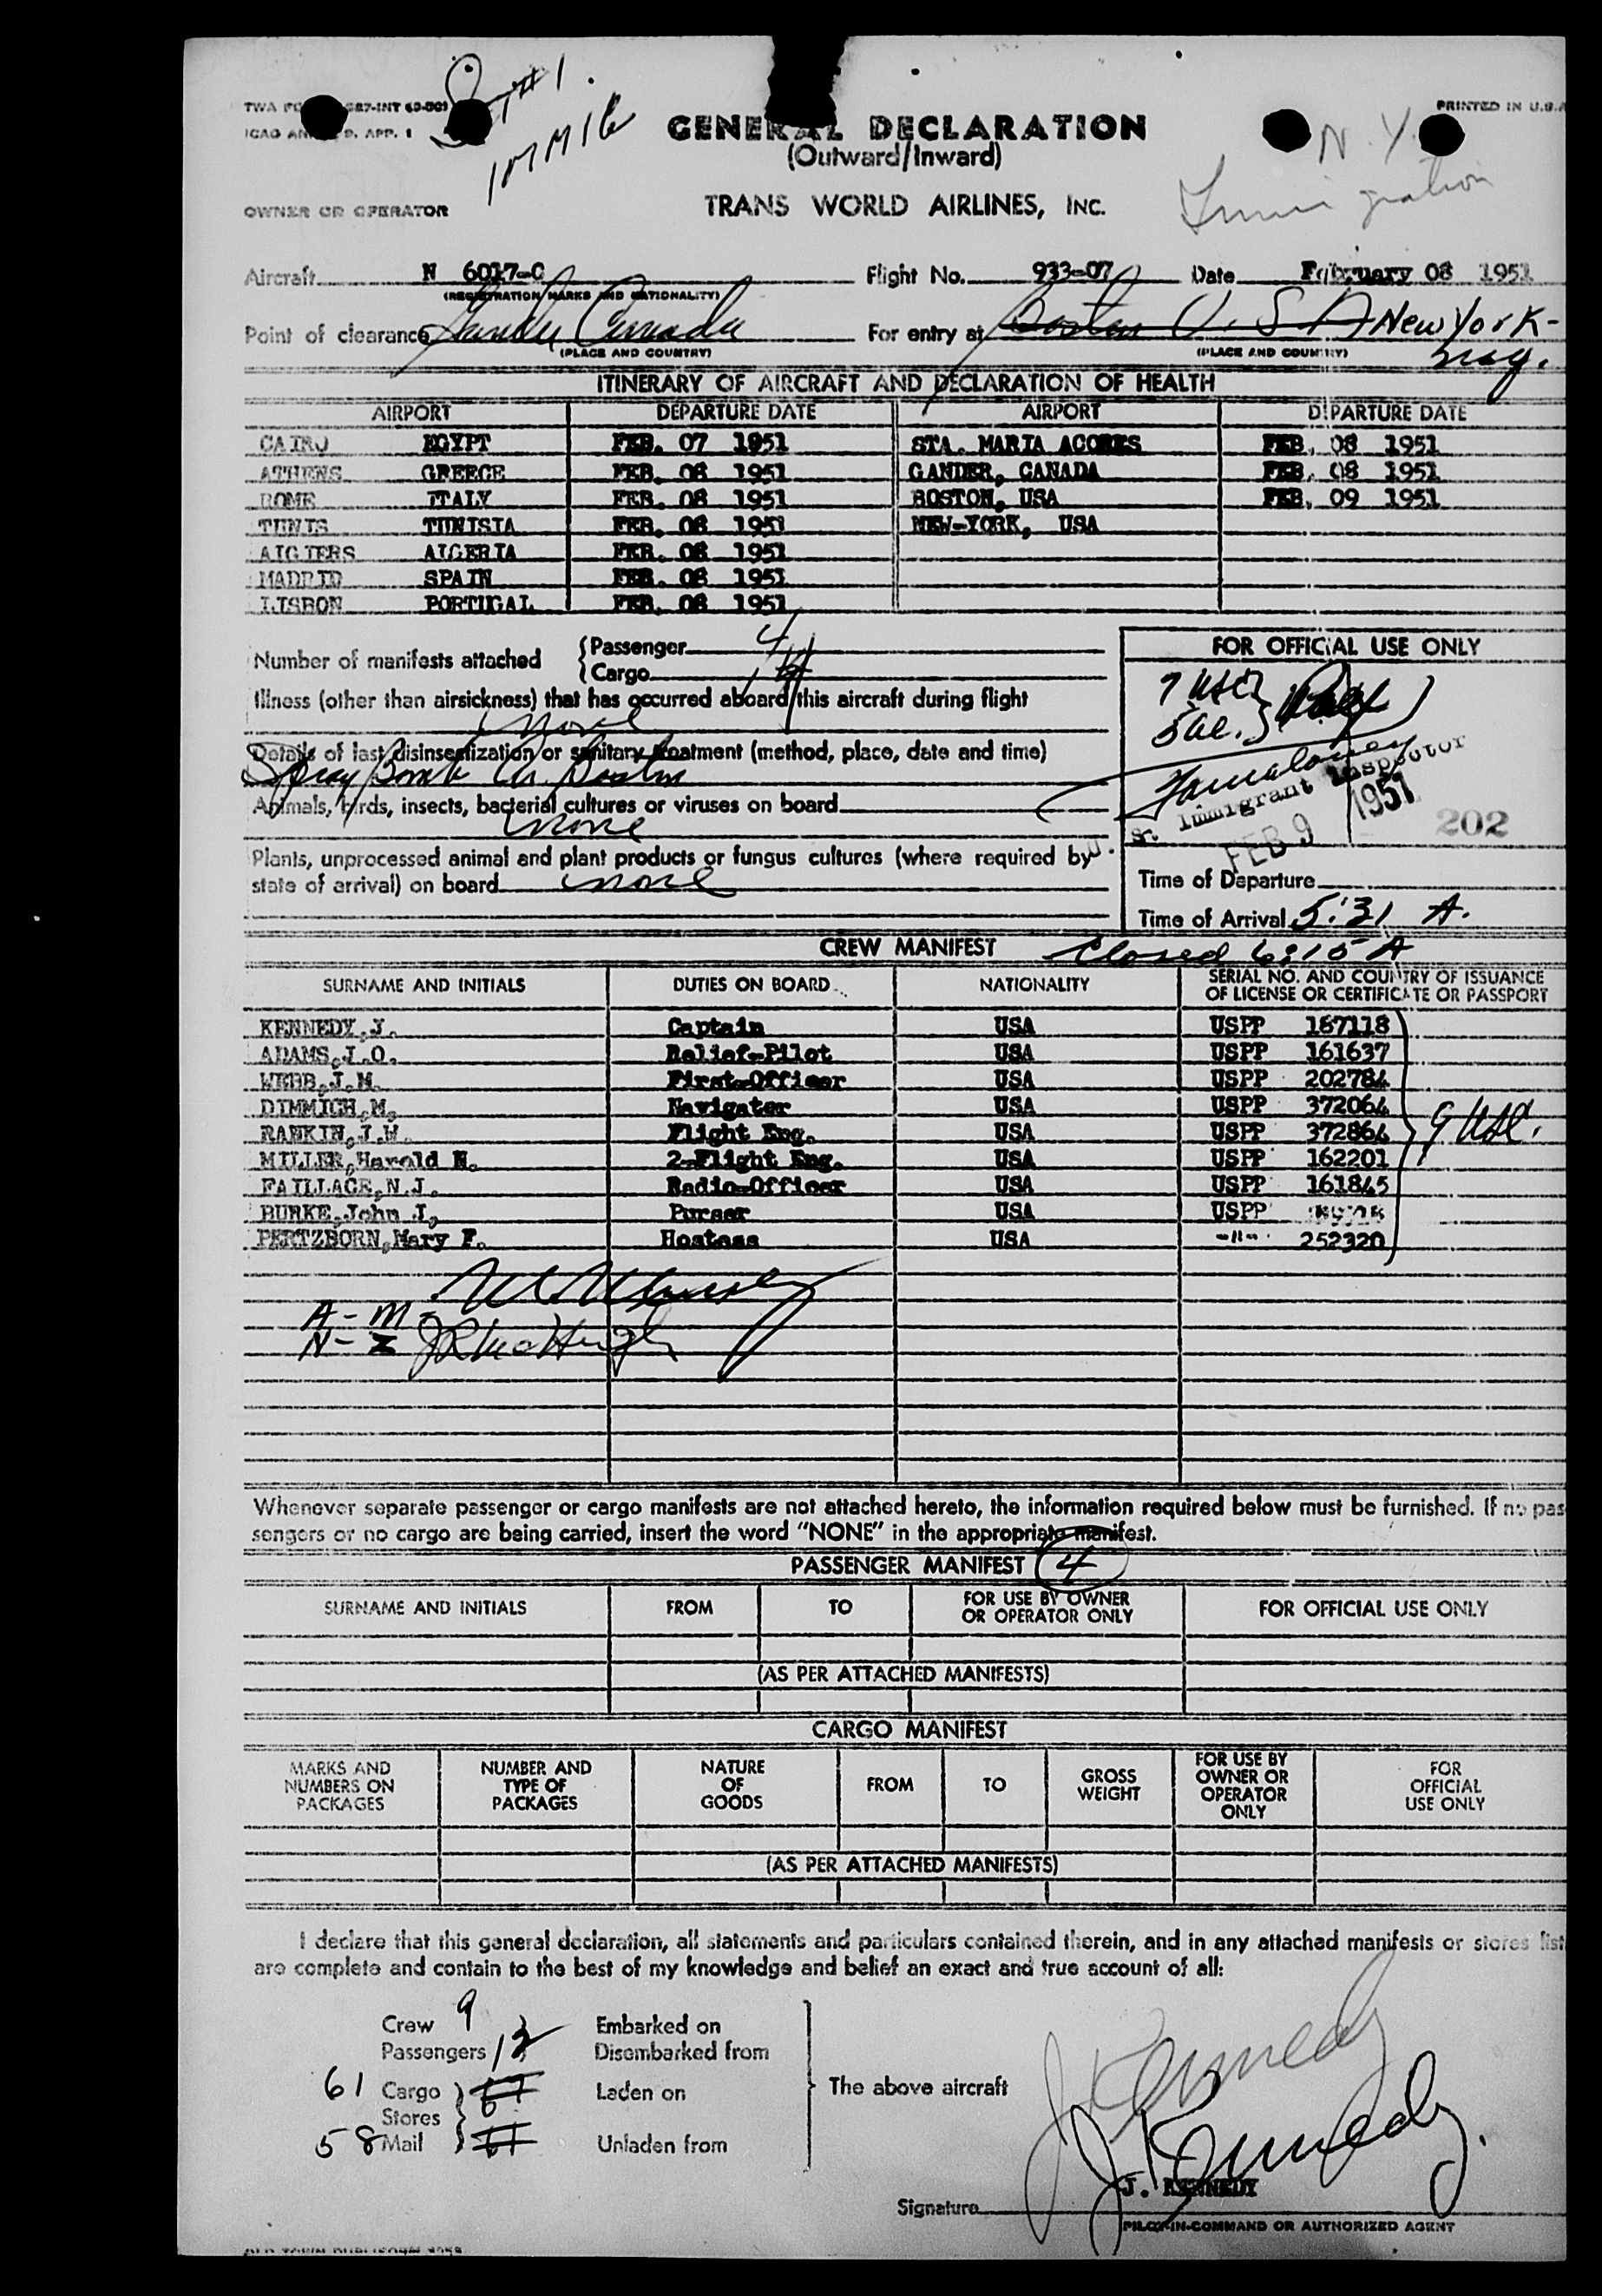 PRINTED IN U.S.A
ICAO
D. APP. 1
GENERAL DECLARATION
(Outward/Inward)
N.Y.
Immigration
OWNER OR OPERATOR
TRANS WORLD AIRLINES, INC.
Aircraft N 6017-C Flight No. 933-07 Date February 08 1951
(REGISTRATION MARKS AND NATIONALITY)
Point of clearance Gander Canada For entry at Boston U.S.A New York-
(PLACE AND COUNTRY) (PLACE AND COUNTRY)
ITINERARY OF AIRCRAFT AND DECLARATION OF HEALTH
AIRPORT DEPARTURE DATE AIRPORT DEPARTURE DATE
CAIRO EGYPT FEB. 07 1951 STA. MARIA ACORES FEB. 08 1951
ATHENS GREECE FEB. 08 1951 GANDER, CANADA FEB. 08 1951
ROME ITALY FEB. 08 1951 BOSTON, USA FEB. 09 1951
TUNIS TUNISIA FEB. 08 1951 NEW-YORK, USA
ALGIERS ALGERIA FEB. 08 1951
MADRID SPAIN FEB. 08 1951
LISBON PORTUGAL FEB. 08 1951
Number of manifests attached
Passenger 4
Cargo
FOR OFFICIAL USE ONLY
Illness (other than airsickness) that has occurred aboard this aircraft during flight
none
Details of last disinsectization or sanitary treatment (method, place, date and time)
Spray Bomb Ar. Boston
Animals, birds, insects, bacterial cultures or viruses on board
none
Sr. Immigrant Inspector
FEB 9 1951
202
Plants, unprocessed animal and plant products or fungus cultures (where required by
state of arrival) on board none
Time of Departure
Time of Arrival 5:31 A.
CREW MANIFEST Closed 6:15 A
SURNAME AND INITIALS DUTIES ON BOARD NATIONALITY SERIAL NO. AND COUNTRY OF ISSUANCE
OF LICENSE OR CERTIFICATE OR PASSPORT
KENNEDY,J. Captain USA USPP 167118
ADAMS,J.O. Relief-Pilot USA USPP 161637
WEBB,J.M. First-Officer USA USPP 202784
DIMMICH,M. Navigator USA USPP 372064
RANKIN,J.W. Flight Eng. USA USPP 372864
MILLER,Harold N. 2-Flight Eng. USA USPP 162201
FAILLACE,N.J. Radio-Officer USA USPP 161845
BURKE,John J, Purser USA USPP
PERTZBORN,Mary F. Hostess USA -"- 252320
A - M -
N - Z J R McHugh
Whenever separate passenger or cargo manifests are not attached hereto, the information required below must be furnished. If no pas
sengers or no cargo are being carried, insert the word "NONE" in the appropriate manifest.
PASSENGER MANIFEST 4
SURNAME AND INITIALS FROM TO FOR USE BY OWNER
OR OPERATOR ONLY FOR OFFICIAL USE ONLY
(AS PER ATTACHED MANIFESTS)
CARGO MANIFEST
MARKS AND
NUMBERS ON
PACKAGES
NUMBER AND
TYPE OF
PACKAGES
NATURE
OF
GOODS
FROM
TO
GROSS
WEIGHT
FOR USE BY
OWNER OR
OPERATOR
ONLY
FOR
OFFICIAL
USE ONLY
(AS PER ATTACHED MANIFESTS)
I declare that this general declaration, all statements and particulars contained therein, and in any attached manifests or stores list
are complete and contain to the best of my knowledge and belief an exact and true account of all:
Crew 9 Embarked on
Passengers 12 Disembarked from
61 Cargo Laden on
Stores
58 Mail Unladen from
The above aircraft
J Kennedy
J Kennedy
J. KENNEDY
Signature
PILOT-IN-COMMAND OR AUTHORIZED AGENT